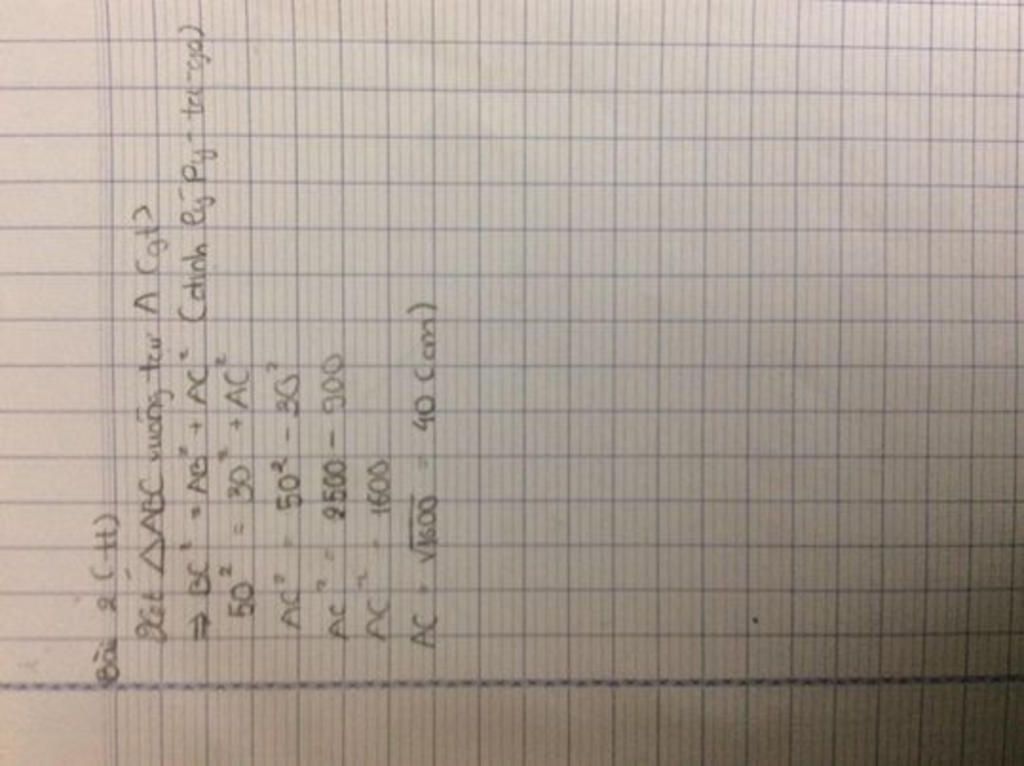 Bài 2 (tt)
Xét ΔABC vuông tại A (gt)
⇒ BC² = AB² + AC² (định lý Py-ta-go)
50² = 30² + AC²
AC² = 50² - 30²
AC² = 2500 - 900
AC² = 1600
AC = √1600 = 40 (cm)